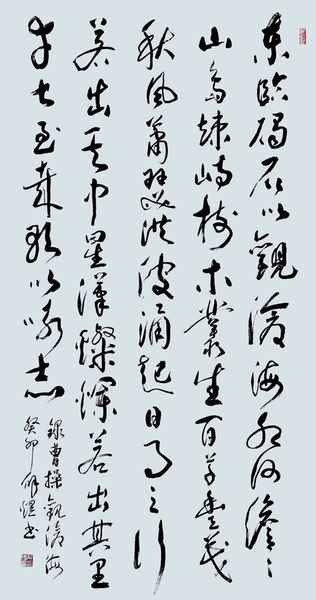 東臨碣石以觀滄海水何澹〻
山島竦峙樹木叢生百草豐茂
秋風蕭瑟洪波涌起日月之行
若出其中星漢燦爛若出其里
幸甚至哉歌以咏志
錄曹操觀滄海
癸卯 書